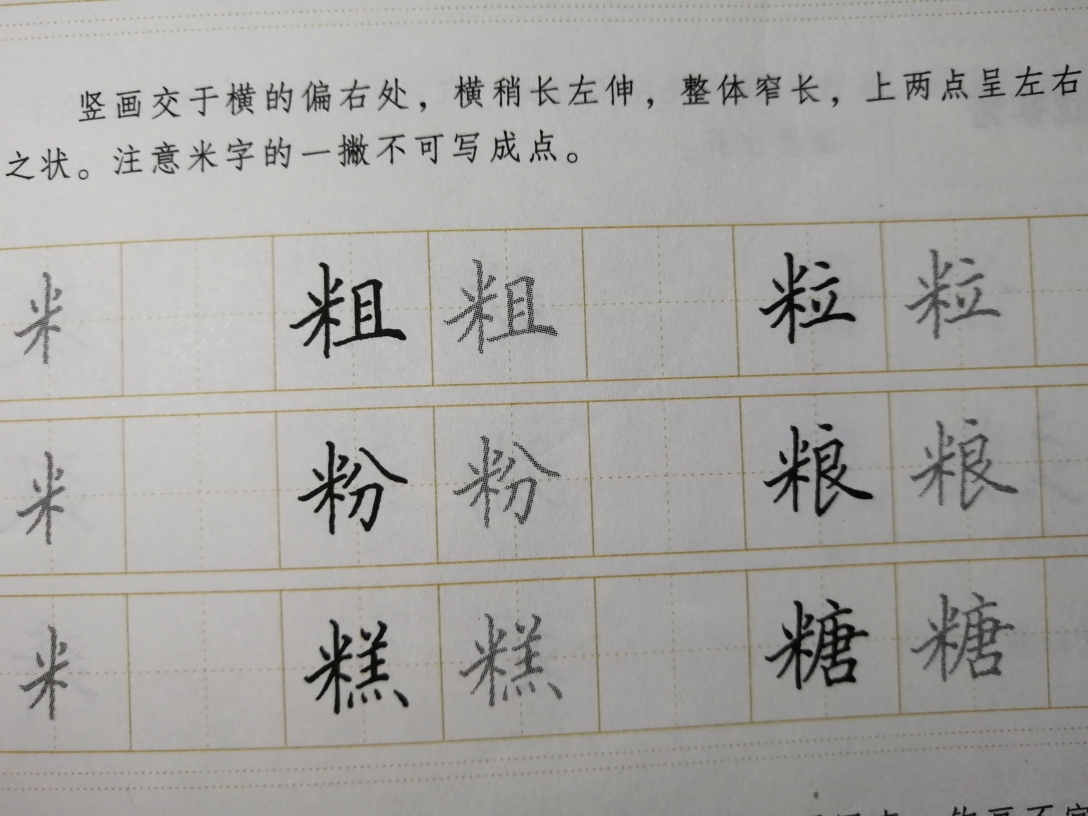 竖画交于横的偏右处，横稍长左伸，整体窄长，上两点呈左右
之状。注意米字的一撇不可写成点。
米 粗 粗 粒 粒
米 粉 粉 粮 粮
米 糕 糕 糖 糖